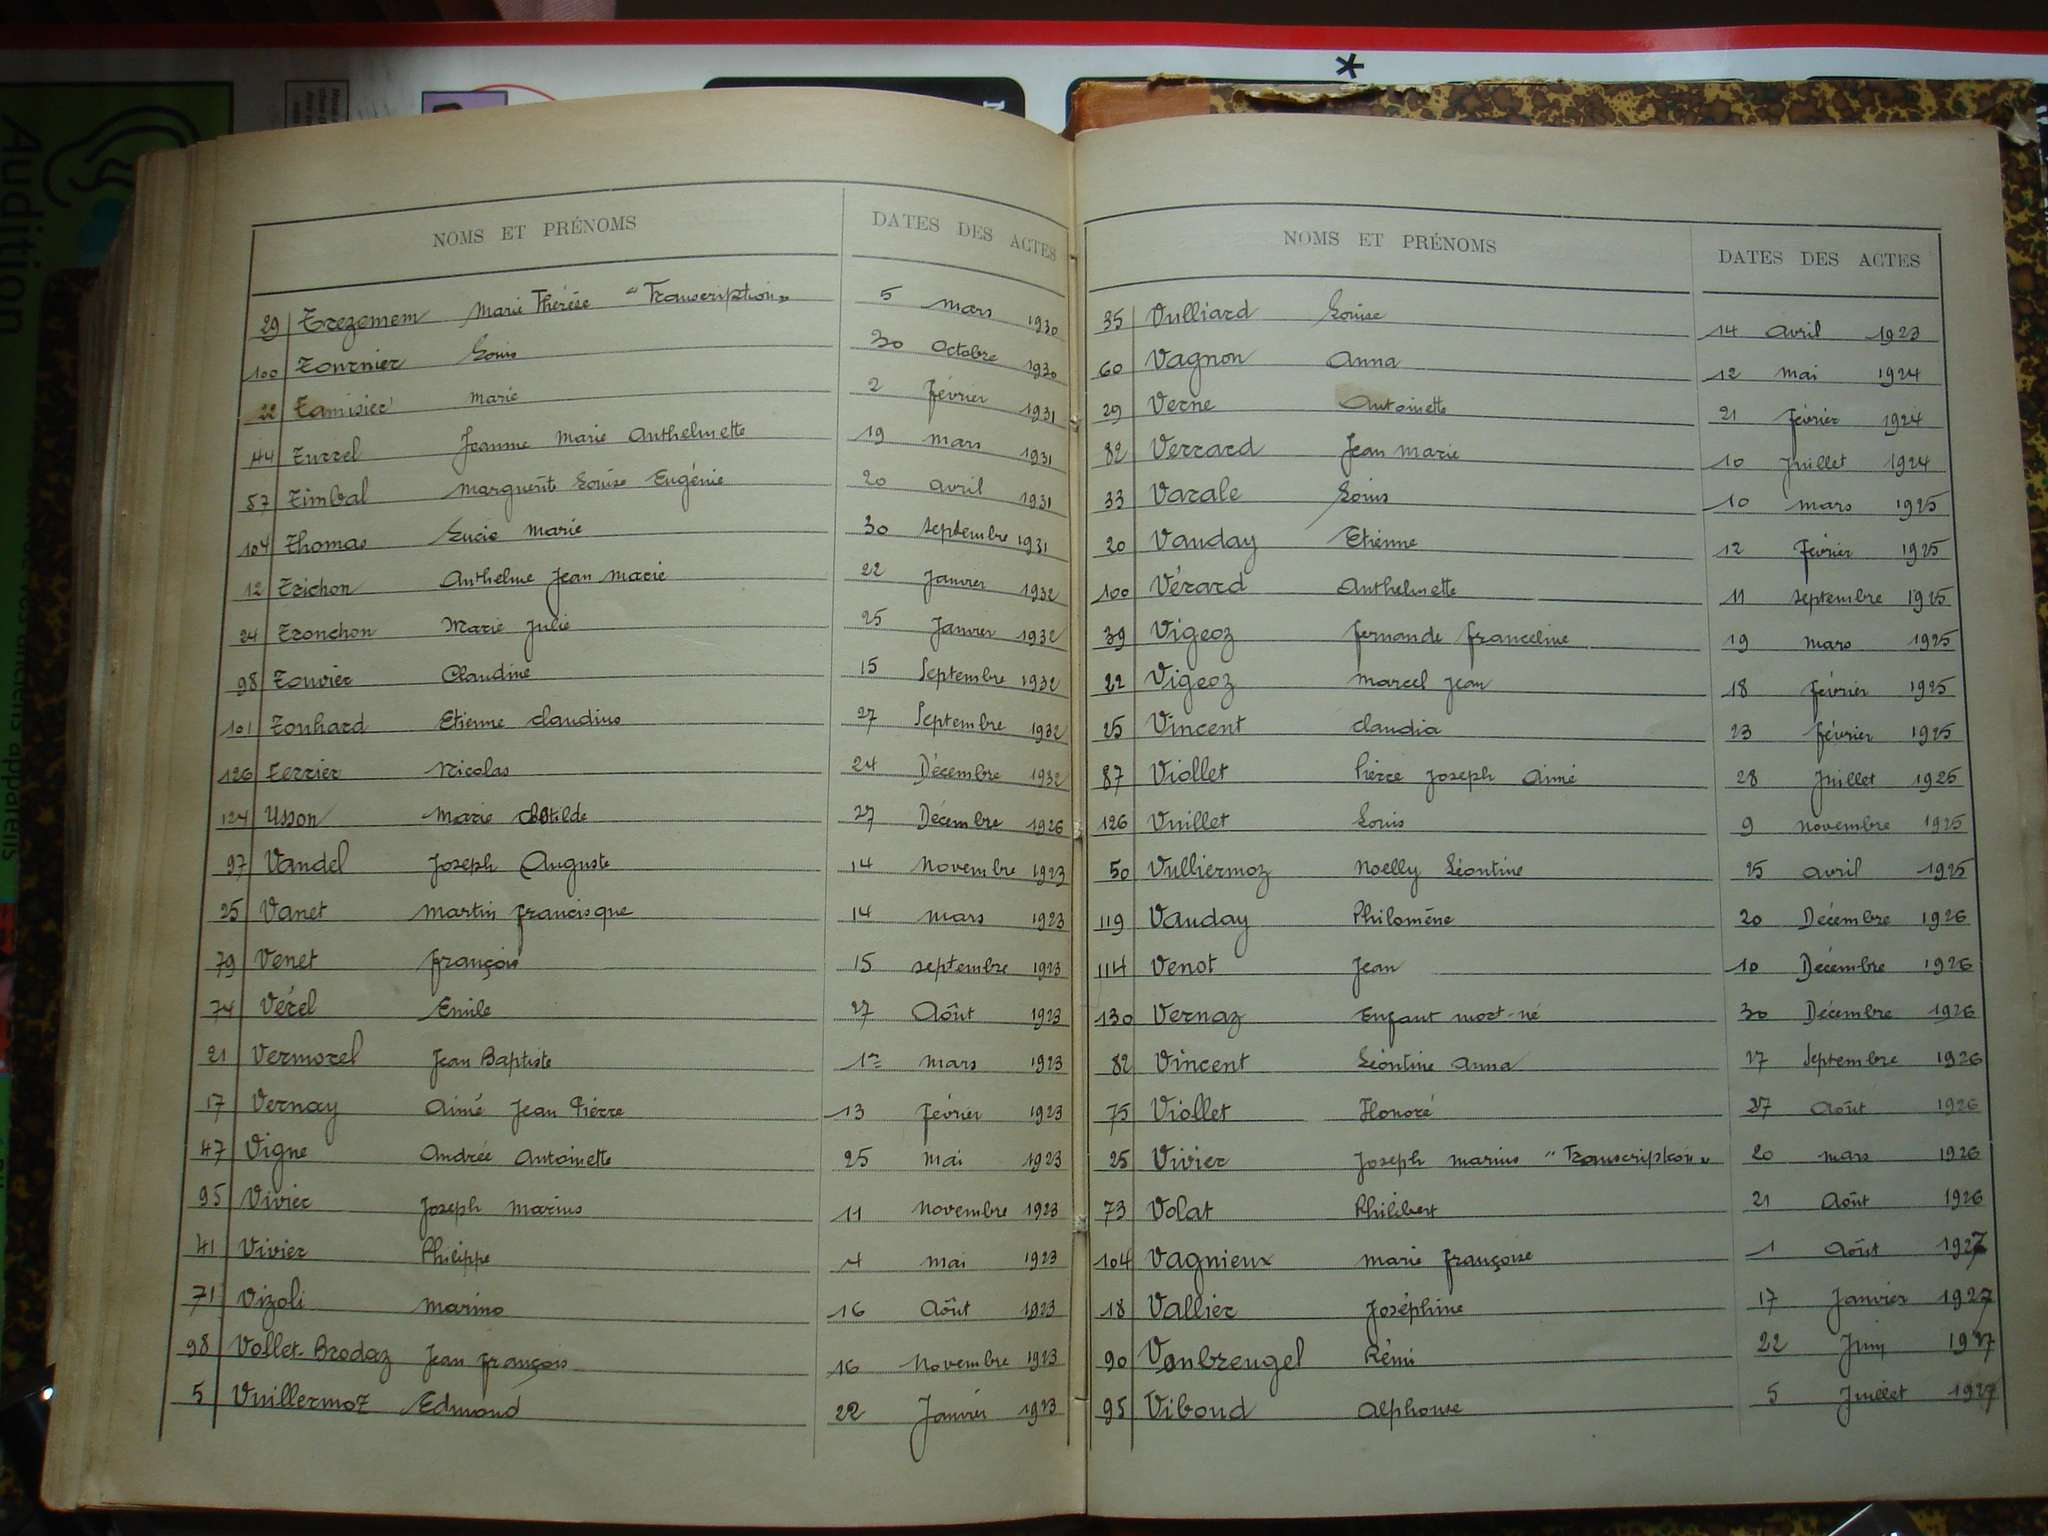 NOMS ET PRÉNOMS DATES DES ACTES
29 Trezemem Marie Thérèse "Transcription" 5 mars 1930
100 Tournier Louis 30 Octobre 1930
22 Tamisier Marie 2 février 1931
44 Turrel Jeanne Marie Anthelmette 19 mars 1931
57 Timbal Marguerit Louise Eugénie 20 avril 1931
104 Thomas Lucie Marie 30 septembre 1931
12 Trichon Anthelme Jean Marie 22 Janvier 1932
24 Tronchon Marie Julie 25 Janvier 1932
98 Touvier Claudine 15 Septembre 1932
101 Touhard Etienne Claudius 27 Septembre 1932
126 Terrier Nicolas 24 Décembre 1932
124 Usson Marie Clotilde 27 Décembre 1926
97 Vandel Joseph Auguste 14 Novembre 1923
25 Vanet Martin Francisque 14 mars 1923
79 Venet François 15 septembre 1923
74 Vérel Emile 27 Août 1923
21 Vermorel Jean Baptiste 1er mars 1923
17 Vernay Aimé Jean Pierre 13 février 1923
47 Vigne Andrée Antoinette 25 Mai 1923
95 Vivier Joseph Marius 11 Novembre 1923
41 Vivier Philippe 4 mai 1923
71 Vizoli Marino 16 Août 1923
98 Vollet-Brodaz Jean François 16 Novembre 1923
5 Vuillermoz Edmond 22 Janvier 1923
NOMS ET PRÉNOMS DATES DES ACTES
35 Vulliard Louise 14 avril 1923
60 Vagnon Anna 12 mai 1924
29 Verne Antoinette 21 février 1924
82 Verrard Jean Marie 10 Juillet 1924
33 Varale Louis 10 mars 1925
20 Vauday Etienne 12 Février 1925
100 Vérard Anthelmette 11 septembre 1925
39 Vigeoz Fernande Franceline 19 mars 1925
22 Vigeoz Marcel Jean 18 février 1925
25 Vincent Claudia 23 février 1925
87 Viollet Pierre Joseph Aimé 28 Juillet 1925
126 Vuillet Louis 9 novembre 1925
50 Vulliermoz Noelly Léontine 25 avril 1925
119 Vauday Philomène 20 Décembre 1926
114 Venot Jean 10 Décembre 1926
130 Vernaz Enfant mort-né 30 Décembre 1926
82 Vincent Léontine Anna 17 Septembre 1926
75 Viollet Honoré 27 Août 1926
25 Vivier Joseph Marius "Transcription" 20 mars 1926
73 Volat Philibert 21 Août 1926
104 Vagnieux Marie Françoise 1 Août 1927
18 Vallier Joséphine 17 Janvier 1927
90 Vanbreugel Rémi 22 Juin 1927
95 Viboud Alphonse 5 Juillet 1927
Audition